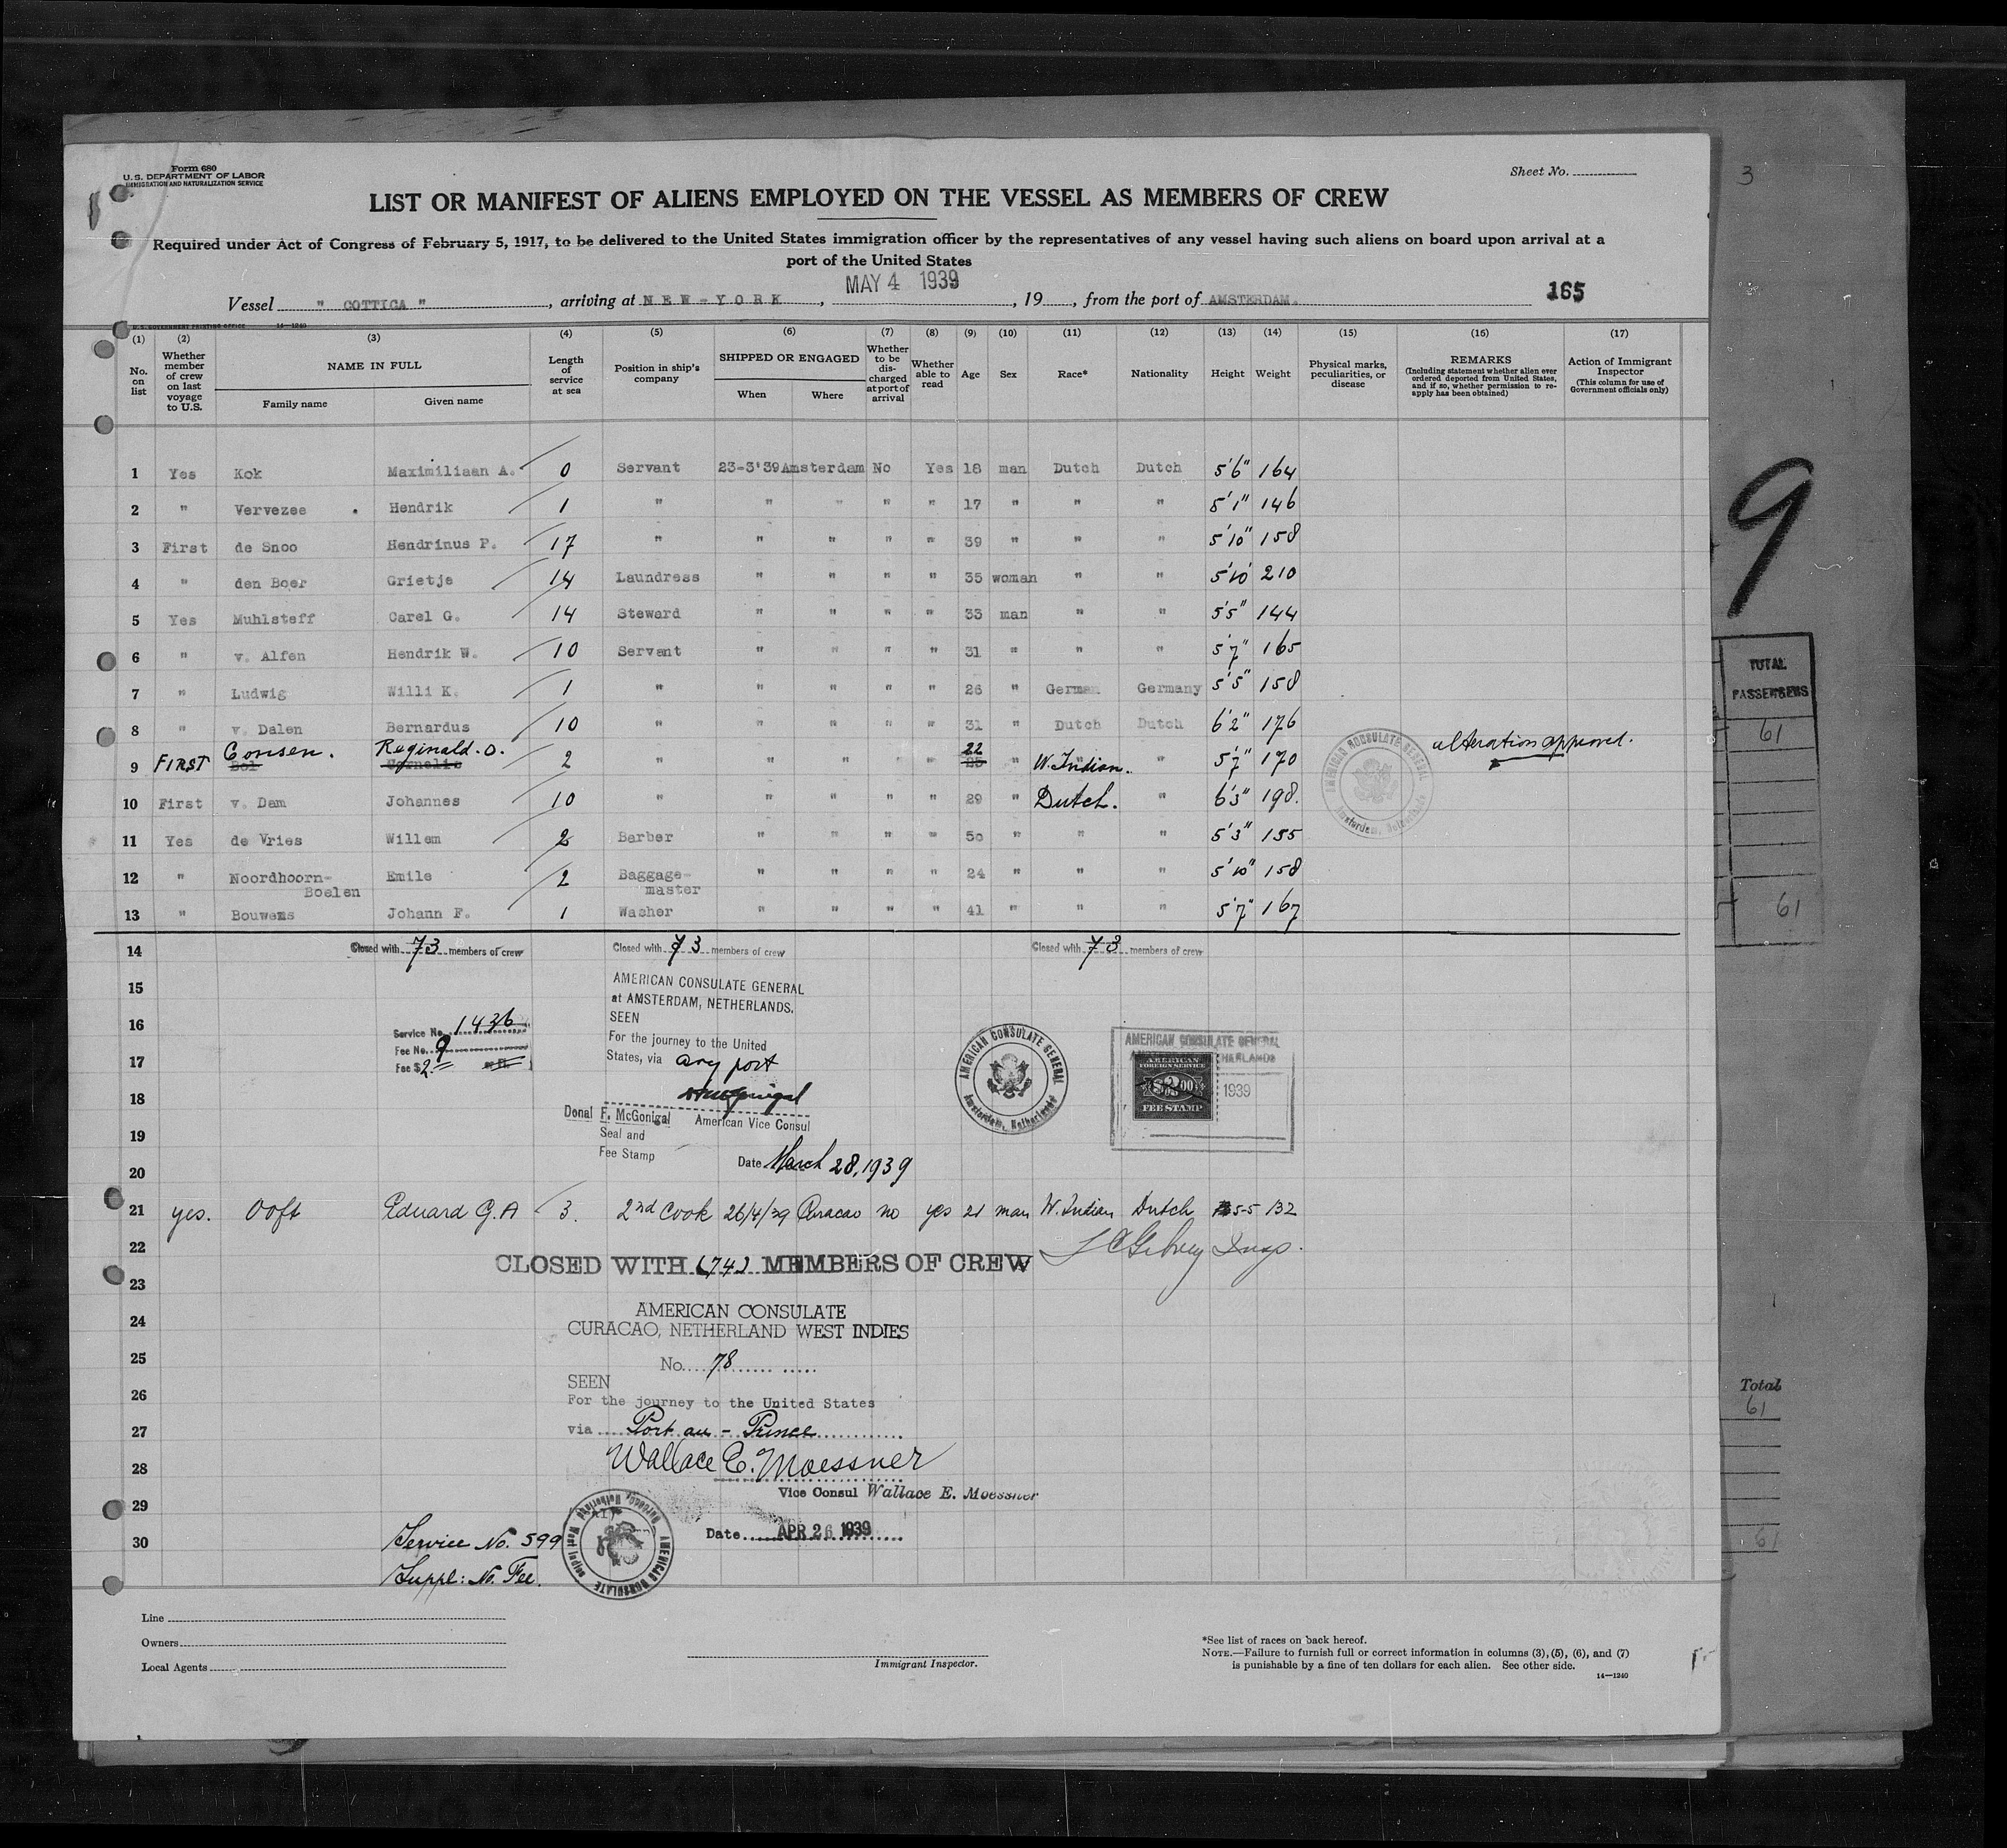 Form 680
U.S. DEPARTMENT OF LABOR
IMMIGRATION AND NATURALIZATION SERVICE
Sheet No.
3
LIST OR MANIFEST OF ALIENS EMPLOYED ON THE VESSEL AS MEMBERS OF CREW
Required under Act of Congress of February 5, 1917, to be delivered to the United States immigration officer by the representatives of any vessel having such aliens on board upon arrival at a
port of the United States
MAY 4 1939
Vessel " COTTICA ", arriving at NEW-YORK, , 19, from the port of AMSTERDAM. 165
U.S. GOVERNMENT PRINTING OFFICE 14—1240
(1) (2) (3) (4) (5) (6) (7) (8) (9) (10) (11) (12) (13) (14) (15) (16) (17)
No. on list
Whether member of crew on last voyage to U.S.
NAME IN FULL
Family name
Given name
Length of service at sea
Position in ship's company
SHIPPED OR ENGAGED
When
Where
Whether to be discharged at port of arrival
Whether able to read
Age
Sex
Race*
Nationality
Height
Weight
Physical marks, peculiarities, or disease
REMARKS
(Including statement whether alien ever ordered deported from United States, and if so, whether permission to reapply has been obtained)
Action of Immigrant Inspector
(This column for use of Government officials only)
1 Yes Kok Maximiliaan A. 0 Servant 23-3'39 Amsterdam No Yes 18 man Dutch Dutch 5'6" 164
2 " Vervezee . Hendrik 1 " " " " " 17 " " " 5'1" 146
3 First de Snoo Hendrinus P. 17 " " " " " 39 " " " 5'10" 158
4 " den Boer Grietje 14 Laundress " " " " 35 woman " " 5'10' 210
5 Yes Muhlsteff Carel G. 14 Steward " " " " 33 man " " 5'5" 144
6 " v. Alfen Hendrik W. 10 Servant " " " " 31 " " " 5'7" 165
7 " Ludwig Willi K. 1 " " " " " 26 " German Germany 5'5" 158
8 " v. Dalen Bernardus 10 " " " " " 31 " Dutch Dutch 6'2" 176
9 FIRST Consen. Reginald. O. 2 " " " " " 22 " W. Indian. " 5'7" 170 alteration approved.
Bol Cornelis 25
10 First v. Dam Johannes 10 " " " " " 29 " Dutch. " 6'3" 198.
11 Yes de Vries Willem 2 Barber " " " " 50 " " " 5'3" 155
12 " Noordhoorn- Emile 2 Baggage- " " " " 24 " " " 5'10" 158
Boelen master
13 " Bouwens Johann F. 1 Washer " " " " 41 " " " 5'7" 167
AMERICAN CONSULATE GENERAL
Amsterdam, Netherlands
14 Closed with 73 members of crew Closed with 73 members of crew Closed with 73 members of crew
15 AMERICAN CONSULATE GENERAL
at AMSTERDAM, NETHERLANDS.
16 SEEN
Service No. 1436
For the journey to the United
Fee No. 9
17 States, via any port
Fee $2.=
18
Donal F. McGonigal American Vice Consul
19 Seal and
Fee Stamp
20 Date March 28, 1939
AMERICAN CONSULATE GENERAL
Amsterdam, Netherlands
AMERICAN CONSULATE GENERAL
HERLANDS
AMERICAN
FOREIGN SERVICE
$2.00
FEE STAMP
1939
21 yes. Ooft Eduard G.A 3. 2nd Cook 26/4/39 Curacao no yes 21 man W. Indian Dutch 5-5 132
22
CLOSED WITH (74) MEMBERS OF CREW
23
24 AMERICAN CONSULATE
CURACAO, NETHERLAND WEST INDIES
25 No. 78
26 SEEN
For the journey to the United States
27 via Port au - Prince
28 Wallace E. Moessner
Vice Consul Wallace E. Moessner
29
Date APR 26 1939
30 Service No. 599
Suppl: No. Fee.
AMERICAN CONSULATE
Curacao, Netherland West Indies
Line
Owners
Local Agents
Immigrant Inspector.
*See list of races on back hereof.
NOTE.—Failure to furnish full or correct information in columns (3), (5), (6), and (7)
is punishable by a fine of ten dollars for each alien. See other side.
14—1240
9
TOTAL
PASSENGERS
61
61
Total
61
61